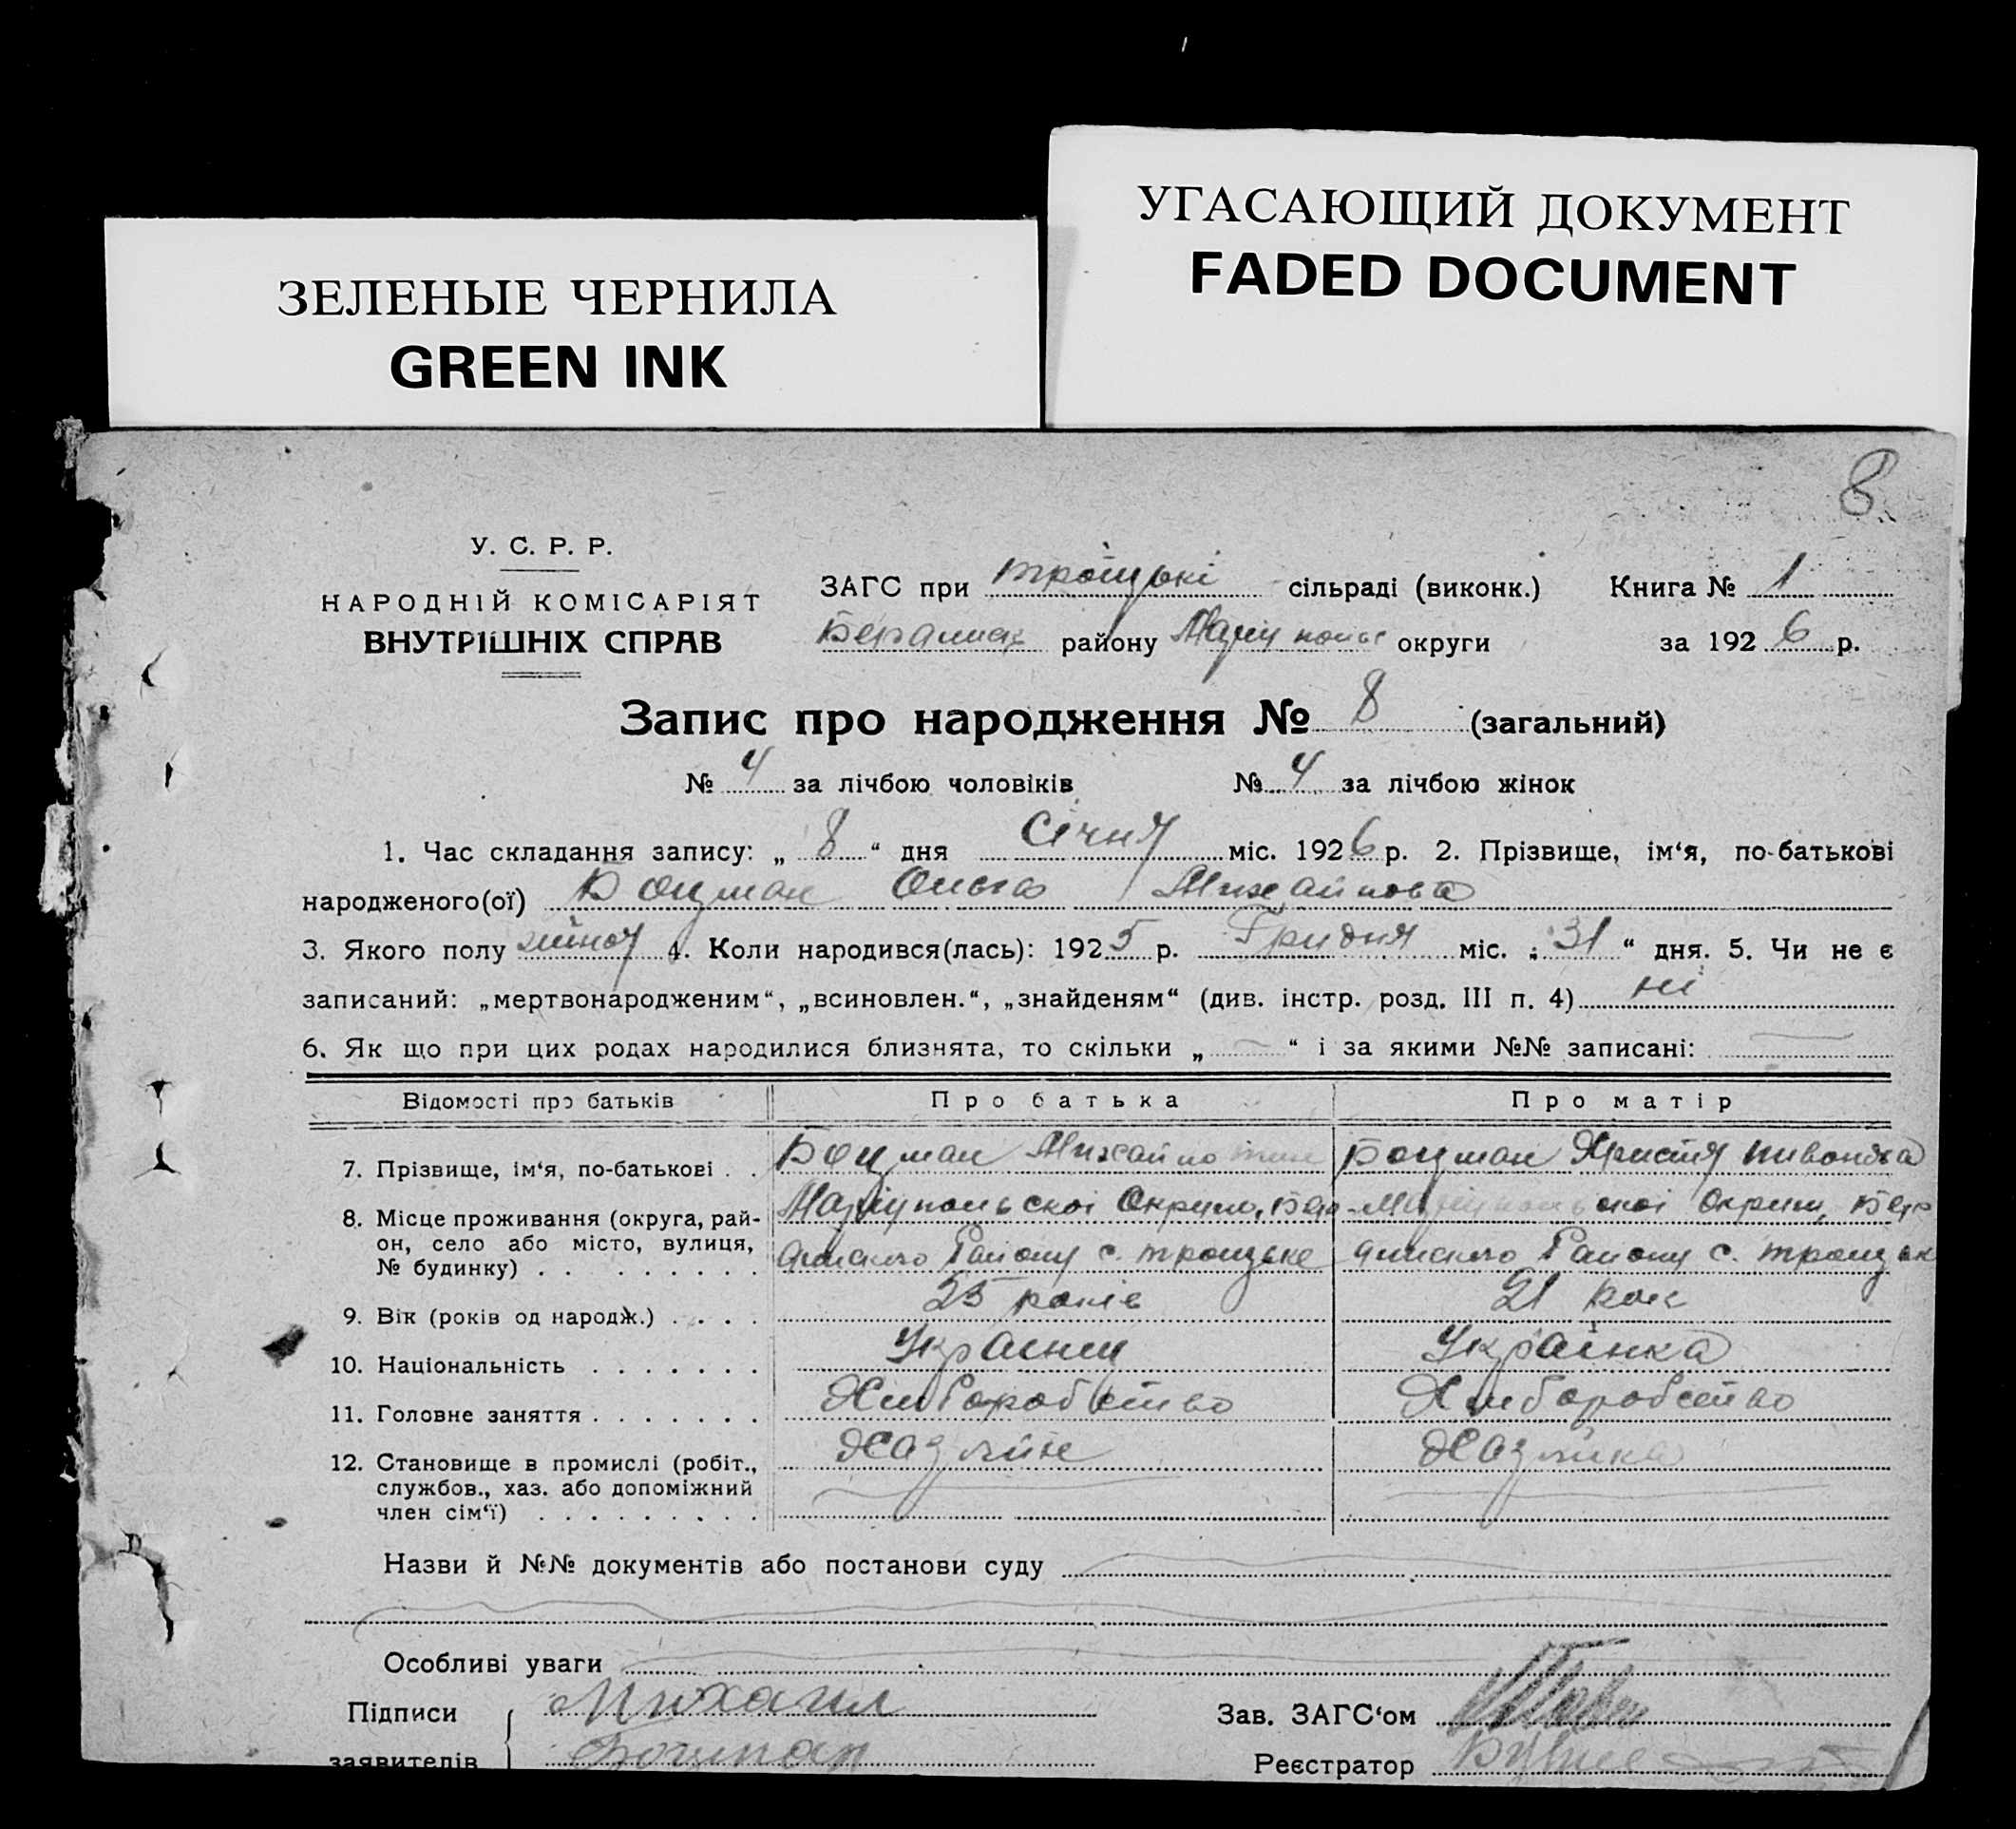 УГАСАЮЩИЙ ДОКУМЕНТ
FADED DOCUMENT
ЗЕЛЕНЫЕ ЧЕРНИЛА
GREEN INK
8
У. С. Р. Р.
НАРОДНІЙ КОМІСАРІЯТ
ВНУТРІШНІХ СПРАВ
ЗАГС при троіцькі сільраді (виконк.) Книга № 1
району Маріупольс округи за 1926 р.
Запис про народження № 8 (загальний)
№ 4 за лічбою чоловіків № 4 за лічбою жінок
1. Час складання запису: „ 8 “ дня Січня міс. 1926 р. 2. Прізвище, ім‘я, по-батькові
народженого(ої) Боцман Ольга Михайлова
3. Якого полу 4. Коли народився(лась): 1925 р. Грудня міс. „ 31 “ дня. 5. Чи не є
записаний: „мертвонародженим“, „всиновлен.“, „знайденям“ (див. інстр. розд. III п. 4) ні
6. Як що при цих родах народилися близнята, то скільки „ — “ і за якими №№ записані: —
Відомості про батьків Про батька Про матір
7. Прізвище, ім‘я, по-батькові . . Боцман Михайло Боцман Христя
8. Місце проживання (округа, рай- Маріупольскоі Округи, Маріупольскоі Округи,
он, село або місто, вулиця, Району с. троіцьке Району с. троіцьк
№ будинку) . . . . . . . .
9. Вік (років од народж.) . . . . 25 років 21 рок
10. Національність . . . . . . . Украінец Украінка
11. Головне заняття . . . . . . . Хліборобство Хліборобство
12. Становище в промислі (робіт., Хазяін Хазяйка
службов., хаз. або допоміжний
член сім‘ї) . . . . . . . . .
Назви й №№ документів або постанови суду
Особливі уваги
Підписи Михаил Зав. ЗАГС‘ом
заявителів Боцман Реєстратор